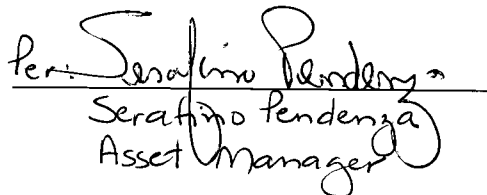 Per: Serafino Pendenza
Serafino Pendenza
Asset Manager